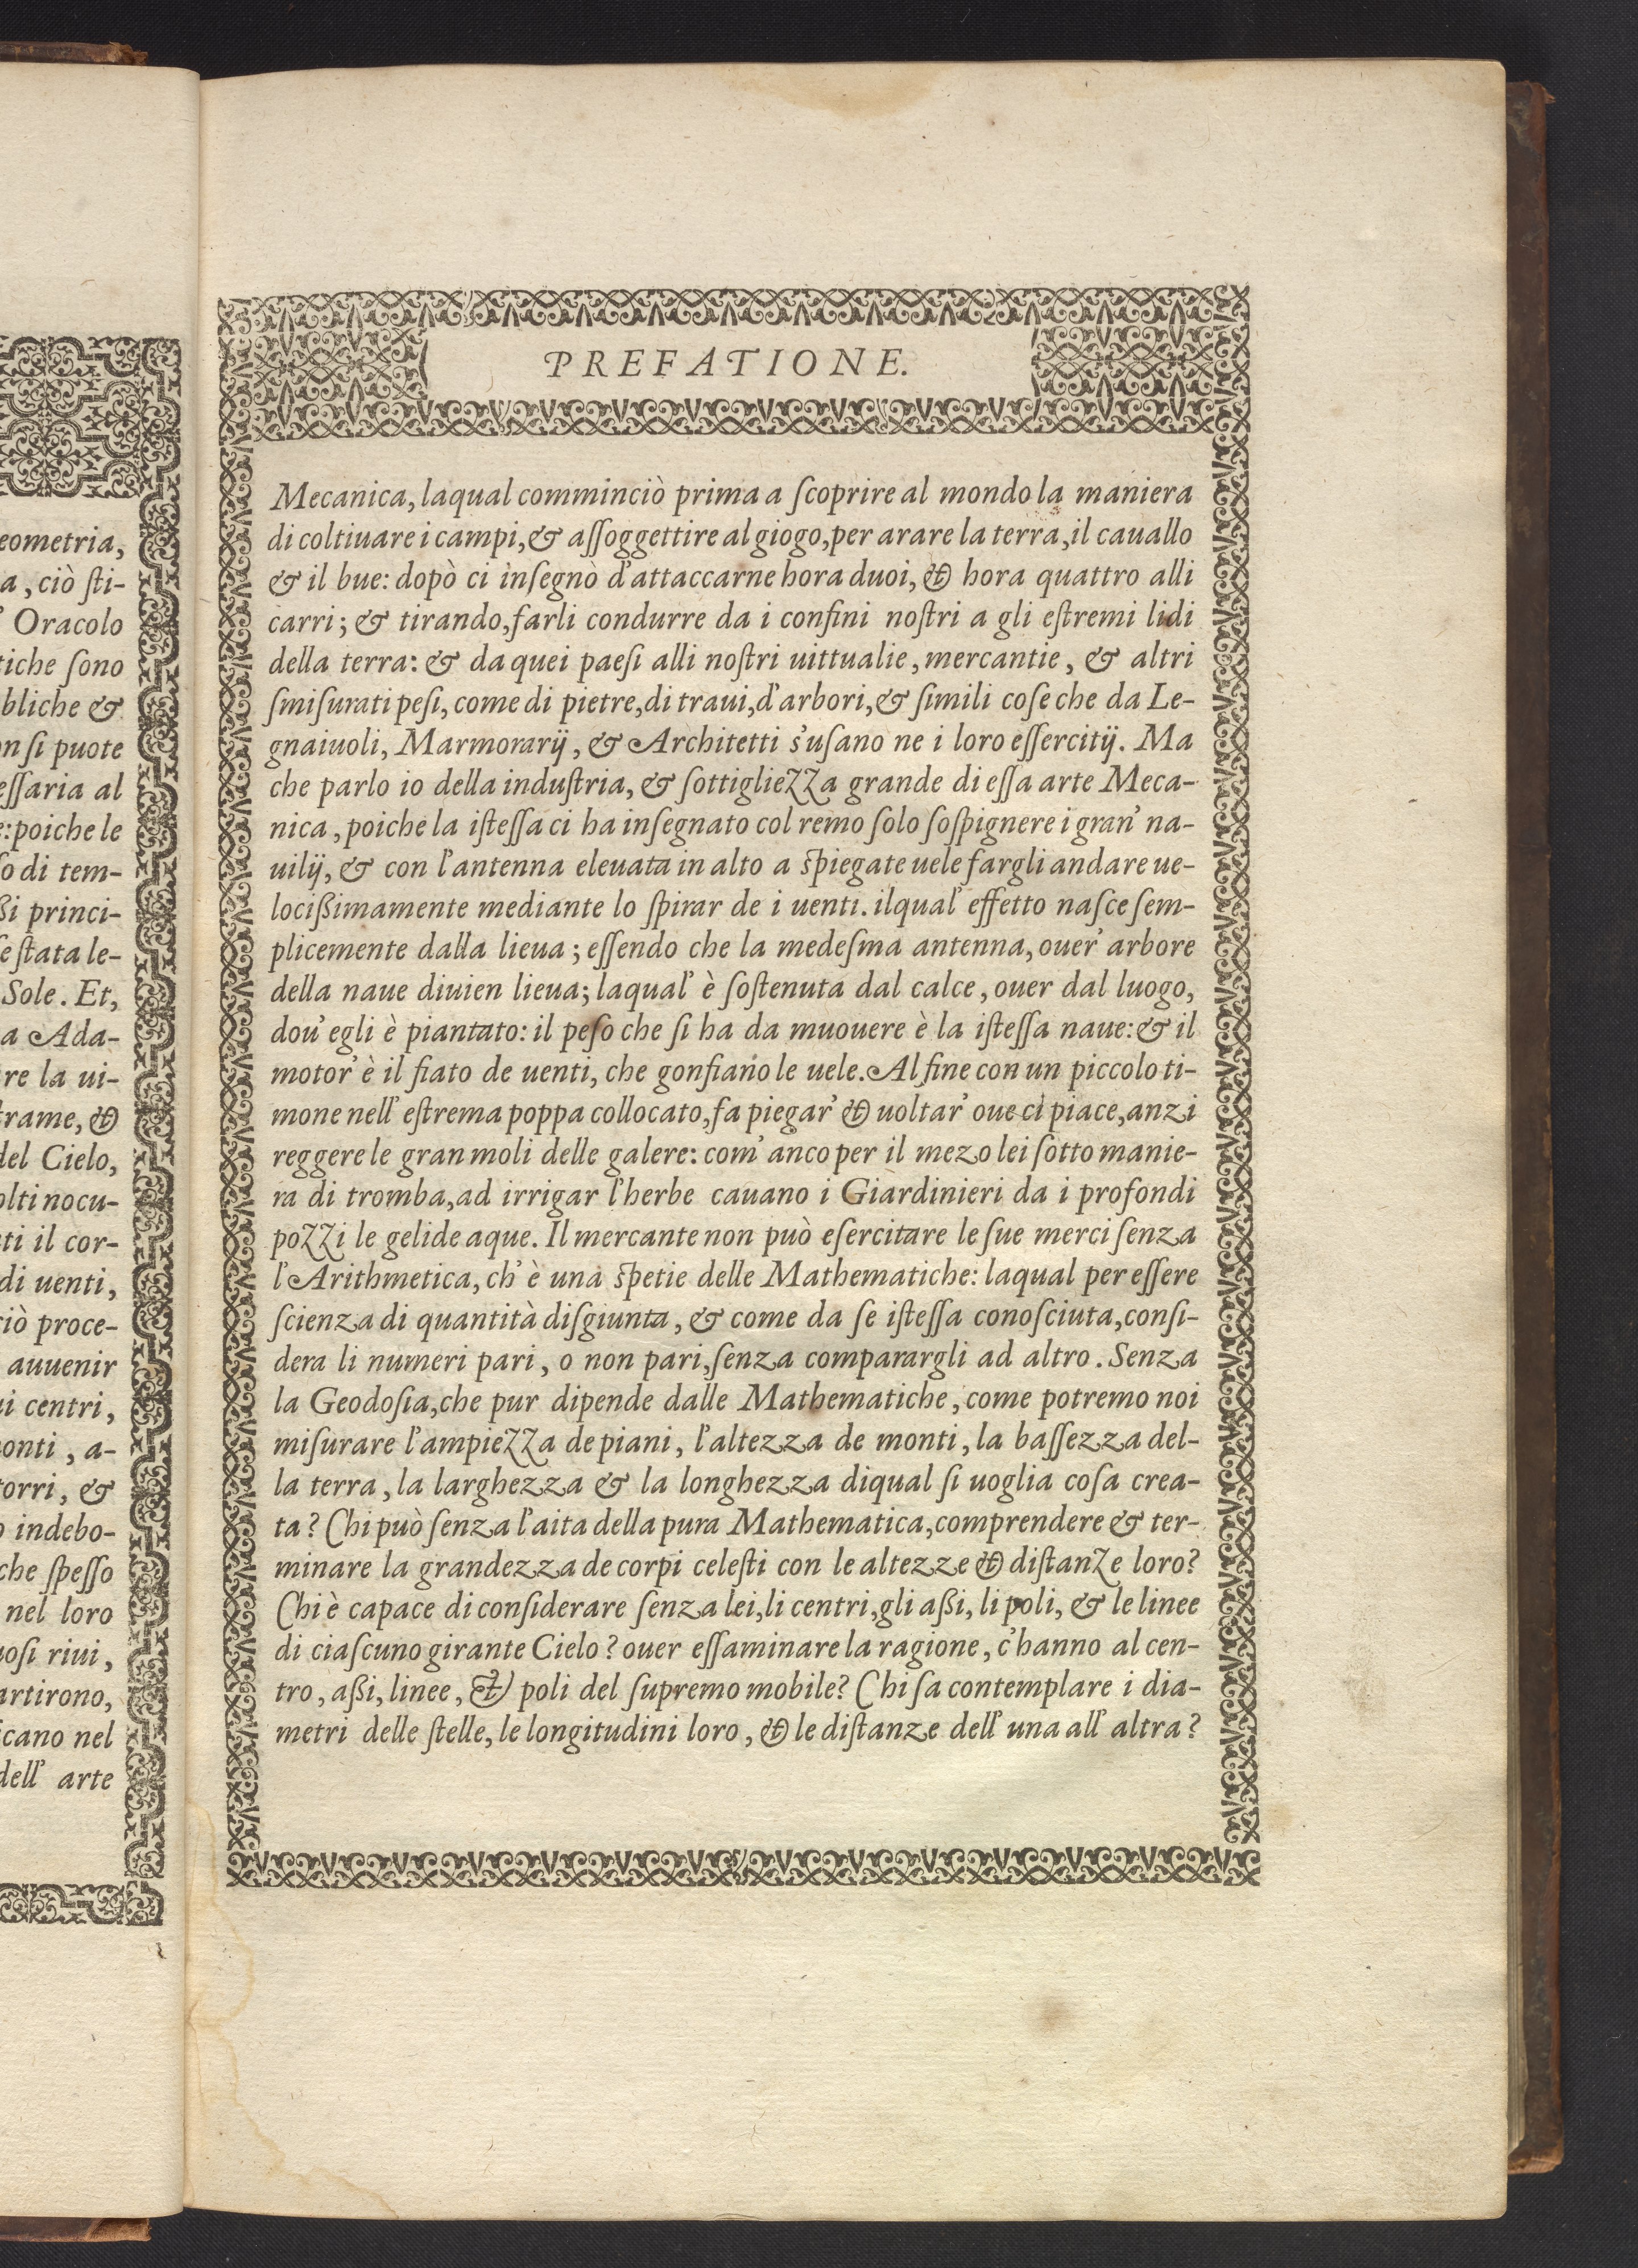 eometria,
a, ciò ſti-
Oracolo
tiche ſono
bliche &
on ſi puote
eſſaria al
e: poiche le
ſo di tem-
ßi princi-
ſe ſtata le-
Sole. Et,
a Ada-
re la ui-
trame, &
del Cielo,
olti nocu-
ti il cor-
di uenti,
ciò proce-
auuenir
ui centri,
onti, a-
torri, &
o indebo-
che ſpeſſo
nel loro
oſi riui,
artirono,
cano nel
dell' arte
PREFATIONE.
Mecanica, laqual comminciò prima a ſcoprire al mondo la maniera
di coltiuare i campi, & aſſoggettire al giogo, per arare la terra, il cauallo
& il bue: dopò ci inſegnò d'attaccarne hora duoi, & hora quattro alli
carri; & tirando, farli condurre da i confini noſtri a gli eſtremi lidi
della terra: & da quei paeſi alli noſtri uittualie, mercantie, & altri
ſmiſurati peſi, come di pietre, di traui, d'arbori, & ſimili coſe che da Le-
gnaiuoli, Marmorarij, & Architetti s'uſano ne i loro eſſercitij. Ma
che parlo io della induſtria, & ſottigliezza grande di eſſa arte Meca-
nica, poiche la iſteſſa ci ha inſegnato col remo ſolo ſoſpignere i gran' na-
uilij, & con l'antenna eleuata in alto a ſpiegate uele fargli andare ue-
locißimamente mediante lo ſpirar de i uenti. ilqual' effetto naſce ſem-
plicemente dalla lieua; eſſendo che la medeſma antenna, ouer' arbore
della naue diuien lieua; laqual' è ſoſtenuta dal calce, ouer dal luogo,
dou' egli è piantato: il peſo che ſi ha da muouere è la iſteſſa naue: & il
motor' è il fiato de uenti, che gonfiano le uele. Al fine con un piccolo ti-
mone nell' eſtrema poppa collocato, fa piegar' & uoltar' oue ci piace, anzi
reggere le gran moli delle galere: com' anco per il mezo lei ſotto manie-
ra di tromba, ad irrigar l'herbe cauano i Giardinieri da i profondi
pozzi le gelide aque. Il mercante non può eſercitare le ſue merci ſenza
l'Arithmetica, ch' è una ſpetie delle Mathematiche: laqual per eſſere
ſcienza di quantità diſgiunta, & come da ſe iſteſſa conoſciuta, conſi-
dera li numeri pari, o non pari, ſenza comparargli ad altro. Senza
la Geodoſia, che pur dipende dalle Mathematiche, come potremo noi
miſurare l'ampiezza de piani, l'altezza de monti, la baſſezza del-
la terra, la larghezza & la longhezza di qual ſi uoglia coſa crea-
ta? Chi può ſenza l'aita della pura Mathematica, comprendere & ter-
minare la grandezza de corpi celeſti con le altezze & diſtanze loro?
Chi è capace di conſiderare ſenza lei, li centri, gli aßi, li poli, & le linee
di ciaſcuno girante Cielo? ouer eſſaminare la ragione, c'hanno al cen-
tro, aßi, linee, & poli del ſupremo mobile? Chi ſa contemplare i dia-
metri delle ſtelle, le longitudini loro, & le diſtanze dell' una all' altra?